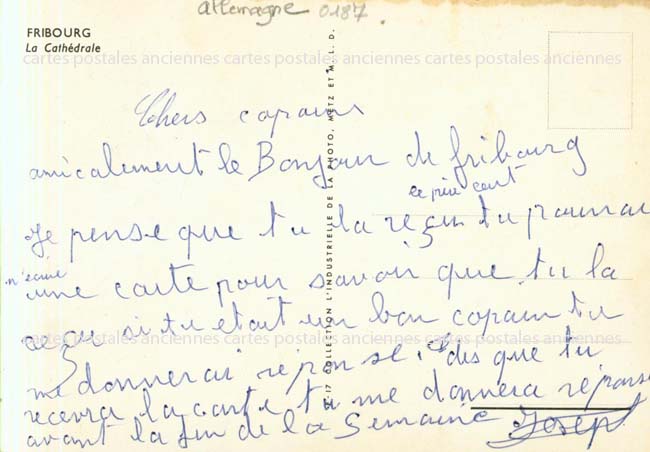 allemagne 0187.
FRIBOURG
La Cathédrale
cartes postales anciennes cartes postales anciennes cartes postales anciennes
Chers copains
amicalement le Bonjour de fribourg
je pense que tu la reçu tu pourrai
n'écrire
une carte pour savoir que tu la
reçu si tu était un bon copain tu
cartes postales anciennes cartes postales anciennes cartes postales anciennes
me donnerai réponse. dès que tu
recevra la carte tu me donnera réponse
avant la fin de la Semaine Josep
17 COLLECTION L'INDUSTRIELLE DE LA PHOTO, METZ ET M. L. D.